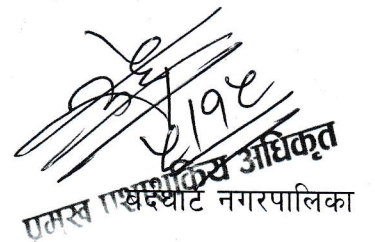 ५।१५
प्रमुख प्रशासकीय अधिकृत
बर्दघाट नगरपालिका